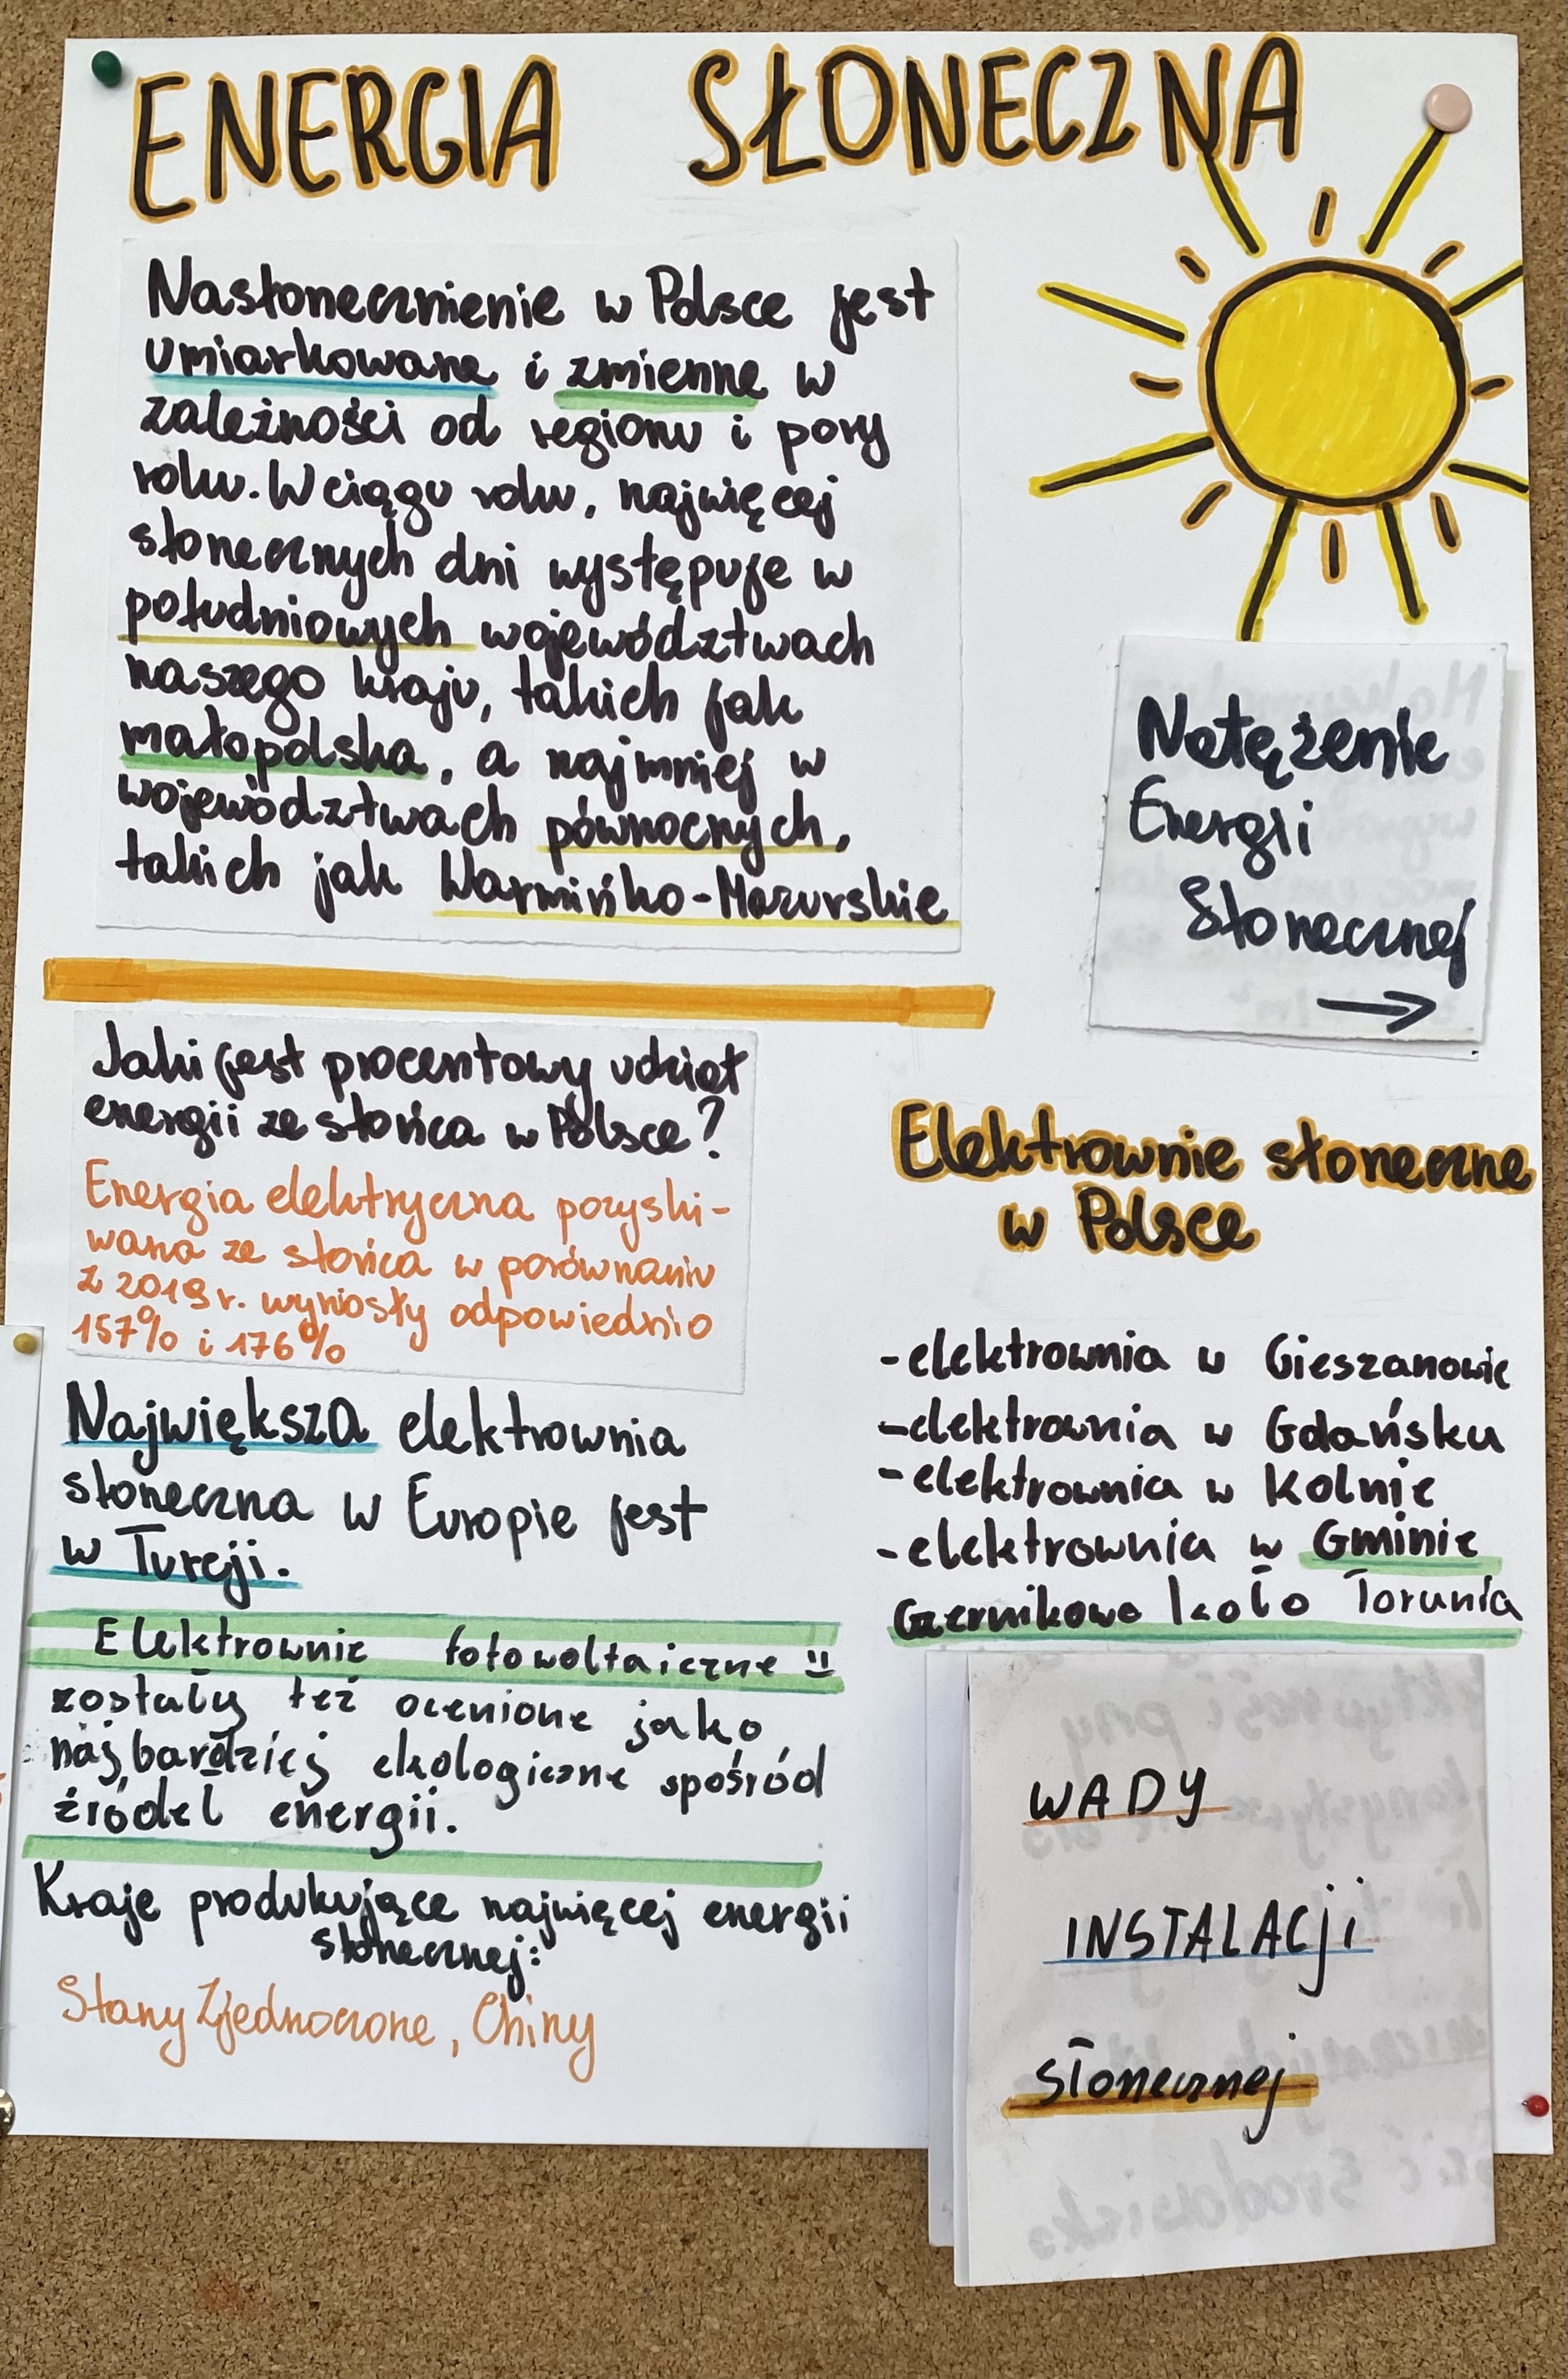 ENERGIA SŁONECZNA
Nasłonecznienie w Polsce jest
umiarkowane i zmienne w
zależności od regionu i pory
roku. W ciągu roku, najwięcej
słonecznych dni występuje w
południowych województwach
naszego kraju, takich jak
małopolska, a najmniej w
województwach pównocnych,
takich jak Warmińko-Mazurskie
Natężenie
Energii
Słonecznej
→
Jaki jest procentowy udział
energii ze słońca w Polsce?
Energia elektryczna pozyski-
wana ze słońca w porównaniu
z 2019 r. wyniosły odpowiednio
157% i 176%
Największa elektrownia
słoneczna w Europie jest
w Turcji.
Elektrownie fotowoltaiczne
zostały też ocenione jako
najbardziej ekologiczne spośród
źródeł energii.
Kraje produkujące najwięcej energii
słonecznej:
Stany Zjednoczone, Chiny
Elektrownie słoneczne
w Polsce
-elektrownia w Gieszanowie
-elektrownia w Gdańsku
-elektrownia w Kolnie
-elektrownia w Gminie
Czernikowo koło Torunia
WADY
INSTALACji
słonecznej